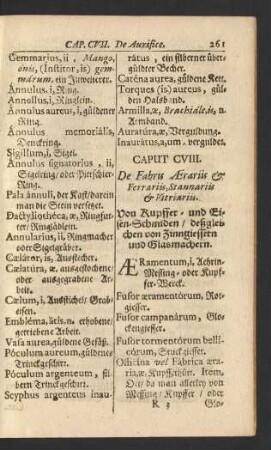 CAP. CVII. De Aurifice. 261
Gemmarius, ii, Mango,
onis, (Institor, is) gem-
márum, ein Juwelierer.
Annulus, i, Ring.
Annellus, i, Ringlein.
Annulus aureus, i, güldener
Ring.
Annulus memoriális,
Denckring.
Sigíllum, i, Sigel.
Annulus signatorius, ii,
Sigelring/ oder Pitschier-
Ring.
Pala ánnuli, der Kast/ darein
man die Stein versetzt.
Dactyliothéca, æ, Ringfut-
ter/ Ringlädlein.
Annularius, ii, Ringmacher
oder Sigelgräber.
Cælátor, is, Ausstecher.
Cælatúra, æ, ausgestochene/
oder ausgegrabene Ar-
beit.
Cælum, i, Ausstichel/ Grab-
eisen.
Embléma, átis, n. erhobene/
getriebene Arbeit.
Vasa aurea, güldene Gefäß.
Póculum aureum, güldenes
Trinckgeschirr.
Póculum argenteum, sil-
bern Trinckgeschirr.
Scyphus argenteus inau-
rátus, ein silberner über-
güldter Becher.
Caténa aurea, güldene Kett.
Torques (is) aureus, gül-
den Halsband.
Armilla, æ, Brachiálé, is, n.
Armband.
Auratúra, æ, Vergüldung.
Inaurátus, a, um, verguldet.
CAPUT CVIII.
De Fabris Ærariis &
Ferrariis, Stannariis
& Vitriariis.
Von Kupffer- und Ei-
sen-Schmiden/ deßglei-
chen von Zinngiessern
und Glasmachern.
ÆRamentum, i, Aehrin,
Messing- oder Kupf-
fer-Werck.
Fusor æramentórum, Rot-
giesser.
Fusor campanárum, Glo-
ckengiesser.
Fusor tormentórum belli-
córum, Stuckgiesser.
Officina vel Fábrica æra-
ria, æ, Kupfferhütt. Item,
Ort/ da man allerley von
Messing/ Kupffer/ oder
R 3 Glo-